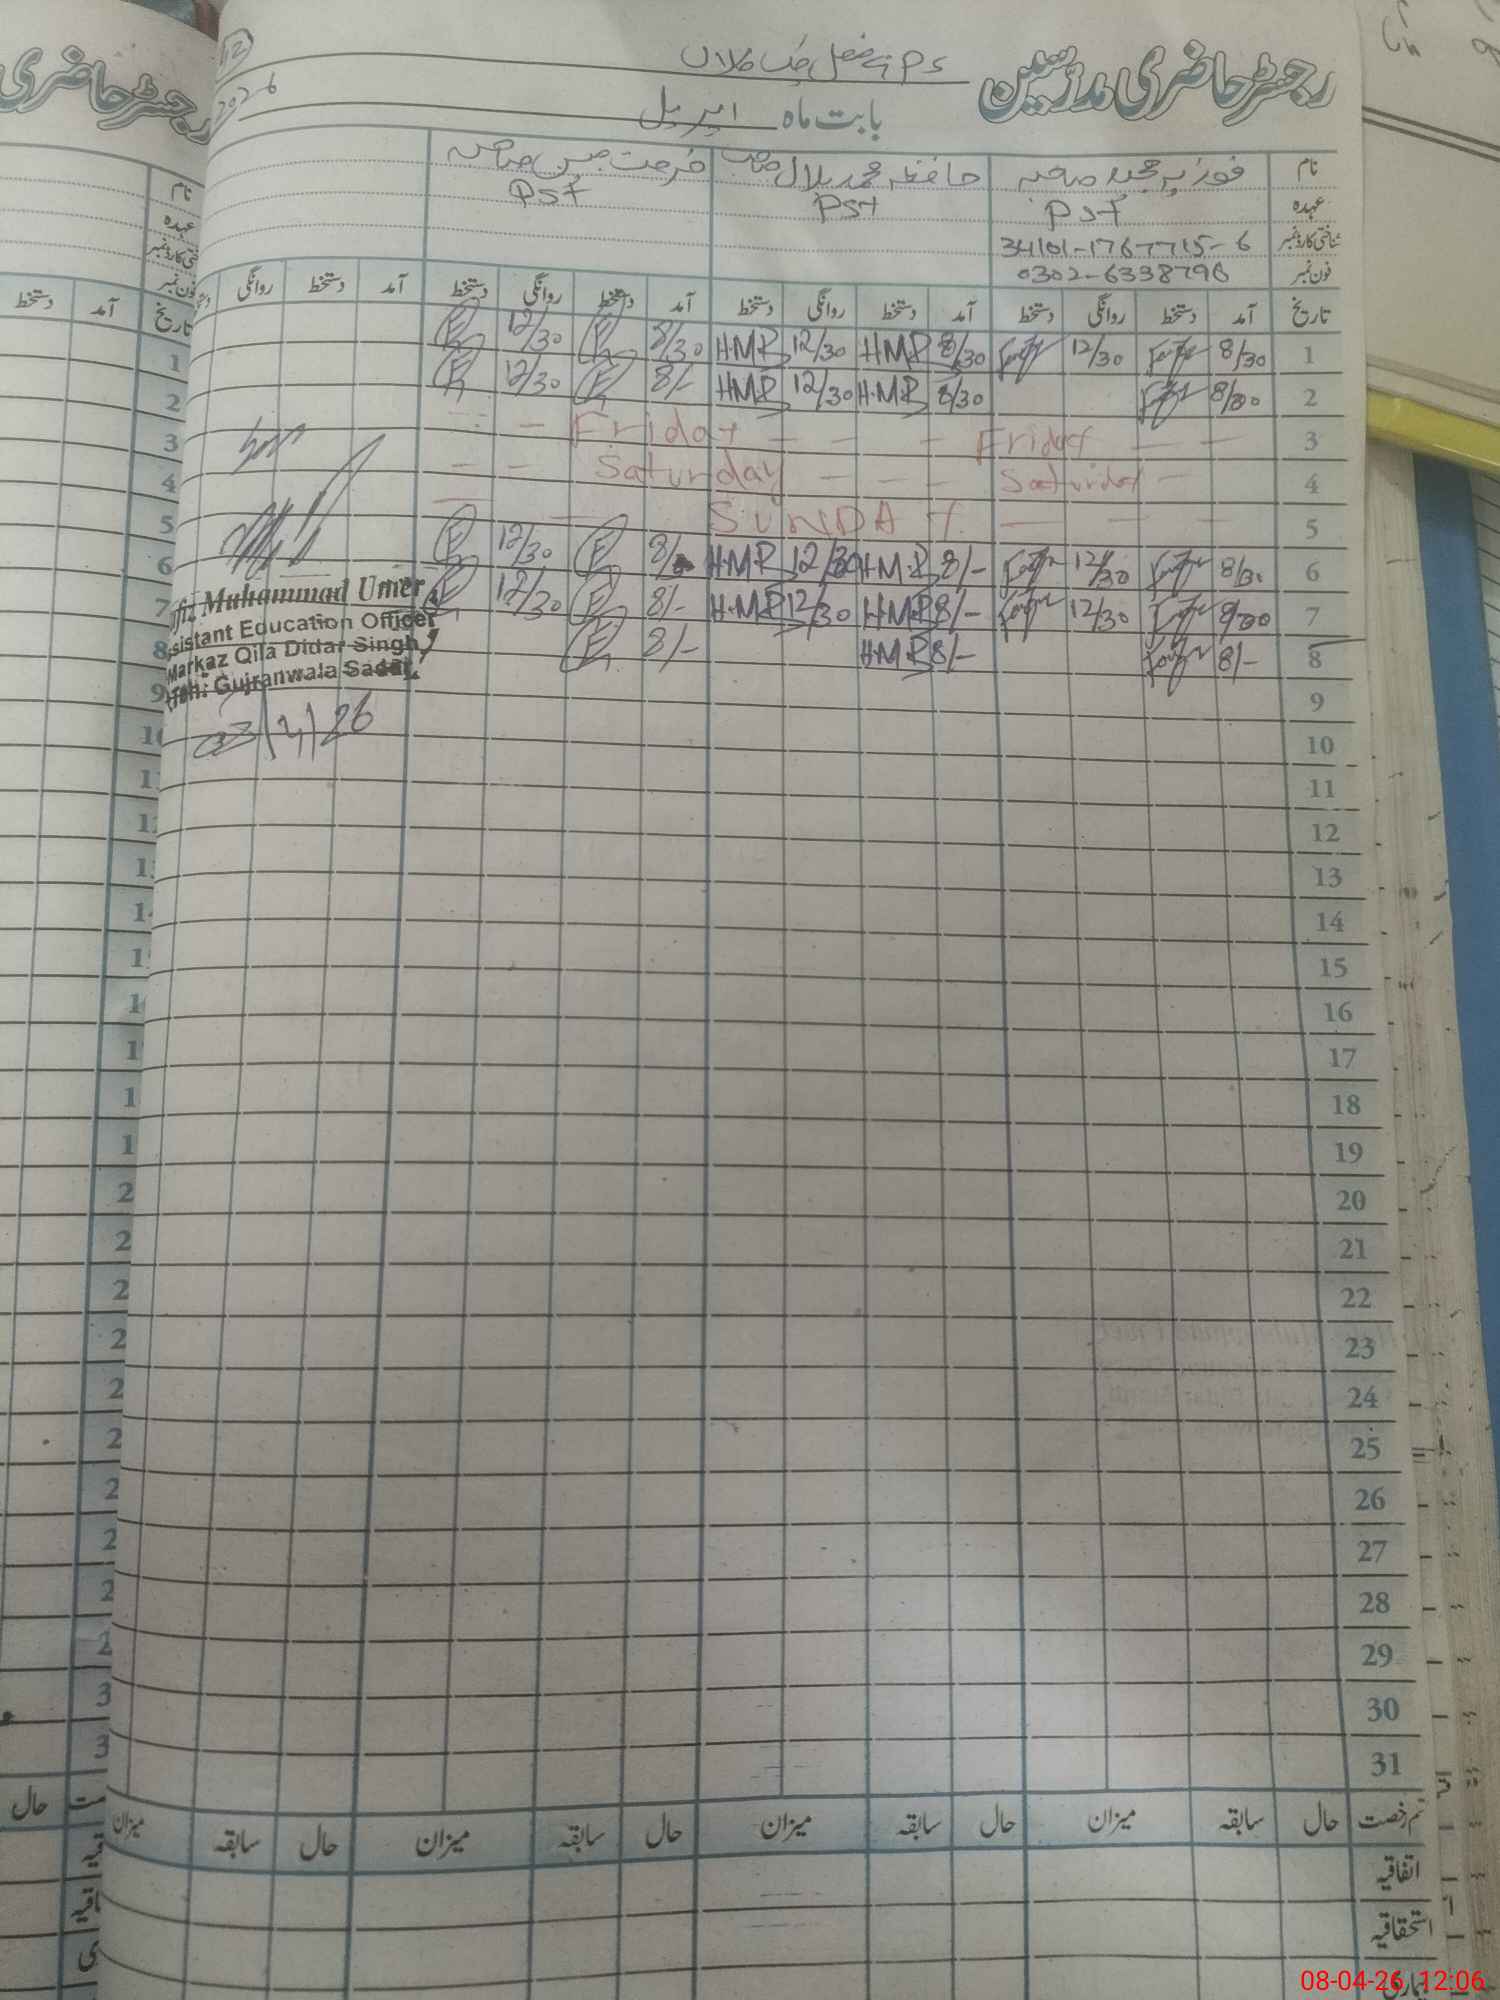 رجسٹر حاضری مدرسین PS
بابت ماہ اپریل 2026
12
نام فوزیہ مجید صاحبہ حافظ محمد بلال صاحب فرحت جبیں صاحبہ
عہدہ PST PST PST
شناختی کارڈ نمبر 34101-1767715-6
فون نمبر 0302-6338796
تاریخ آمد دستخط روانگی دستخط آمد دستخط روانگی دستخط آمد دستخط روانگی دستخط آمد دستخط روانگی
1 8/30 12/30 8/30 H.M.B 12/30 H.M.B 8/30 12/30
2 8/30 8/30 H.M.B 12/30 HMB 8/- 12/30
3 - - Friday - - - Friday - -
4 - - Saturday - - - Saturday -
5 - - SUNDAY - - -
6 8/30 12/30 8/- H.M.B 12/30 H.M.B 8/- 12/30
7 8/30 12/30 8/- H.M.B 12/30 H.M.B 8/- 12/30
8 8/- 8/- H.M.B 8/-
9
10
11
12
13
14
15
16
17
18
19
20
21
22
23
24
25
26
27
28
29
30
31
fiz Muhammad Umer
sistant Education Officer
Markaz Qila Didar Singh
Teh: Gujranwala Sadar
قسم رخصت حال سابقہ میزان حال سابقہ میزان حال سابقہ میزان حال سابقہ میزان
اتفاقیہ
استحقاقیہ
بیماری
رجسٹر حاضری
نام
عہدہ
فون نمبر
تاریخ آمد دستخط
1
2
3
4
5
6
7
8
9
حال
08-04-26 12:06